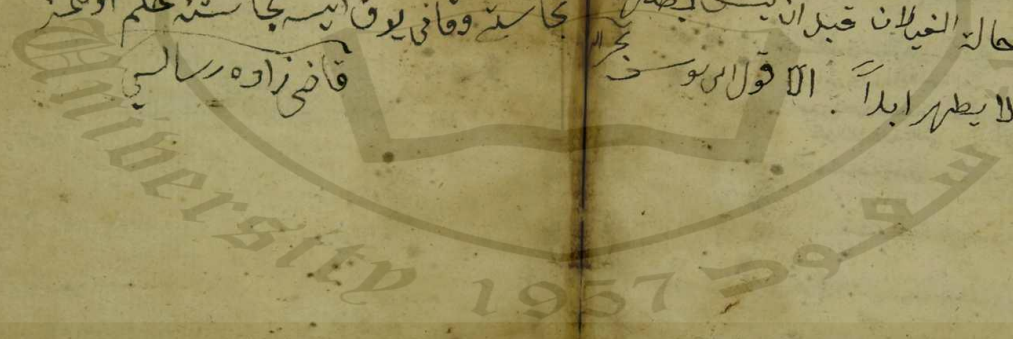 حالة الغليان قبل ان
لا يطهر ابداً . الا قول ابى يوسف
بحر
نجاستى وقانى يوق ايسه نجاستنه حكم اولنمز
قاضى زاده رساله سى
University 1957